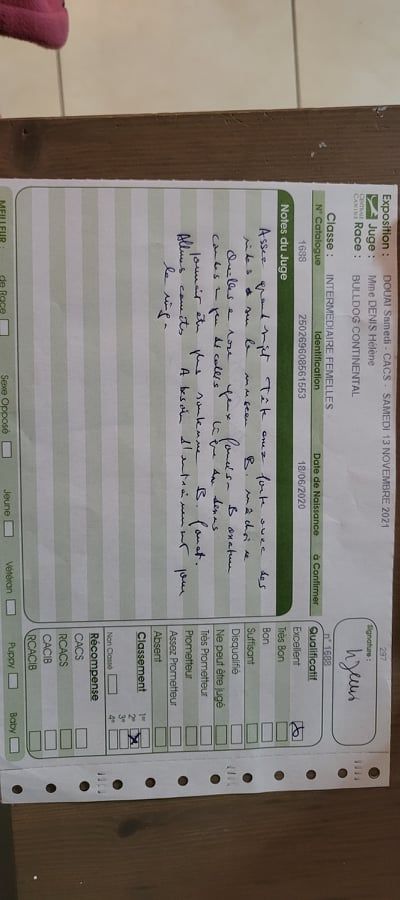 Exposition : DOUAI Samedi - CACS - SAMEDI 13 NOVEMBRE 2021
297
Juge : Mme DENIS Hélène
Race : BULLDOG CONTINENTAL
Signature :
Classe : INTERMEDIAIRE FEMELLES
N° Catalogue Identification Date de Naissance à Confirmer
1688 250269608561553 18/06/2020
n° 1688
Notes du Juge
Assez grand sujet Tête assez forte avec des
rides sur le museau B.
Oreilles en rose yeux foncés B ossature
du dessus
pourrait être plus soutenue B. fouet.
Allures courtes A besoin d'entraînement pour
le ring.
Qualificatif
Excellent
Très Bon
Bon
Suffisant
Disqualifié
Ne peut être jugé
Très Prometteur
Prometteur
Assez Prometteur
Absent
Classement
1er
2e
3e
4e
Non Classé
Récompense
CACS
RCACS
CACIB
RCACIB
MEILLEUR : de Race Sexe Opposé Jeune Vétéran Puppy Baby